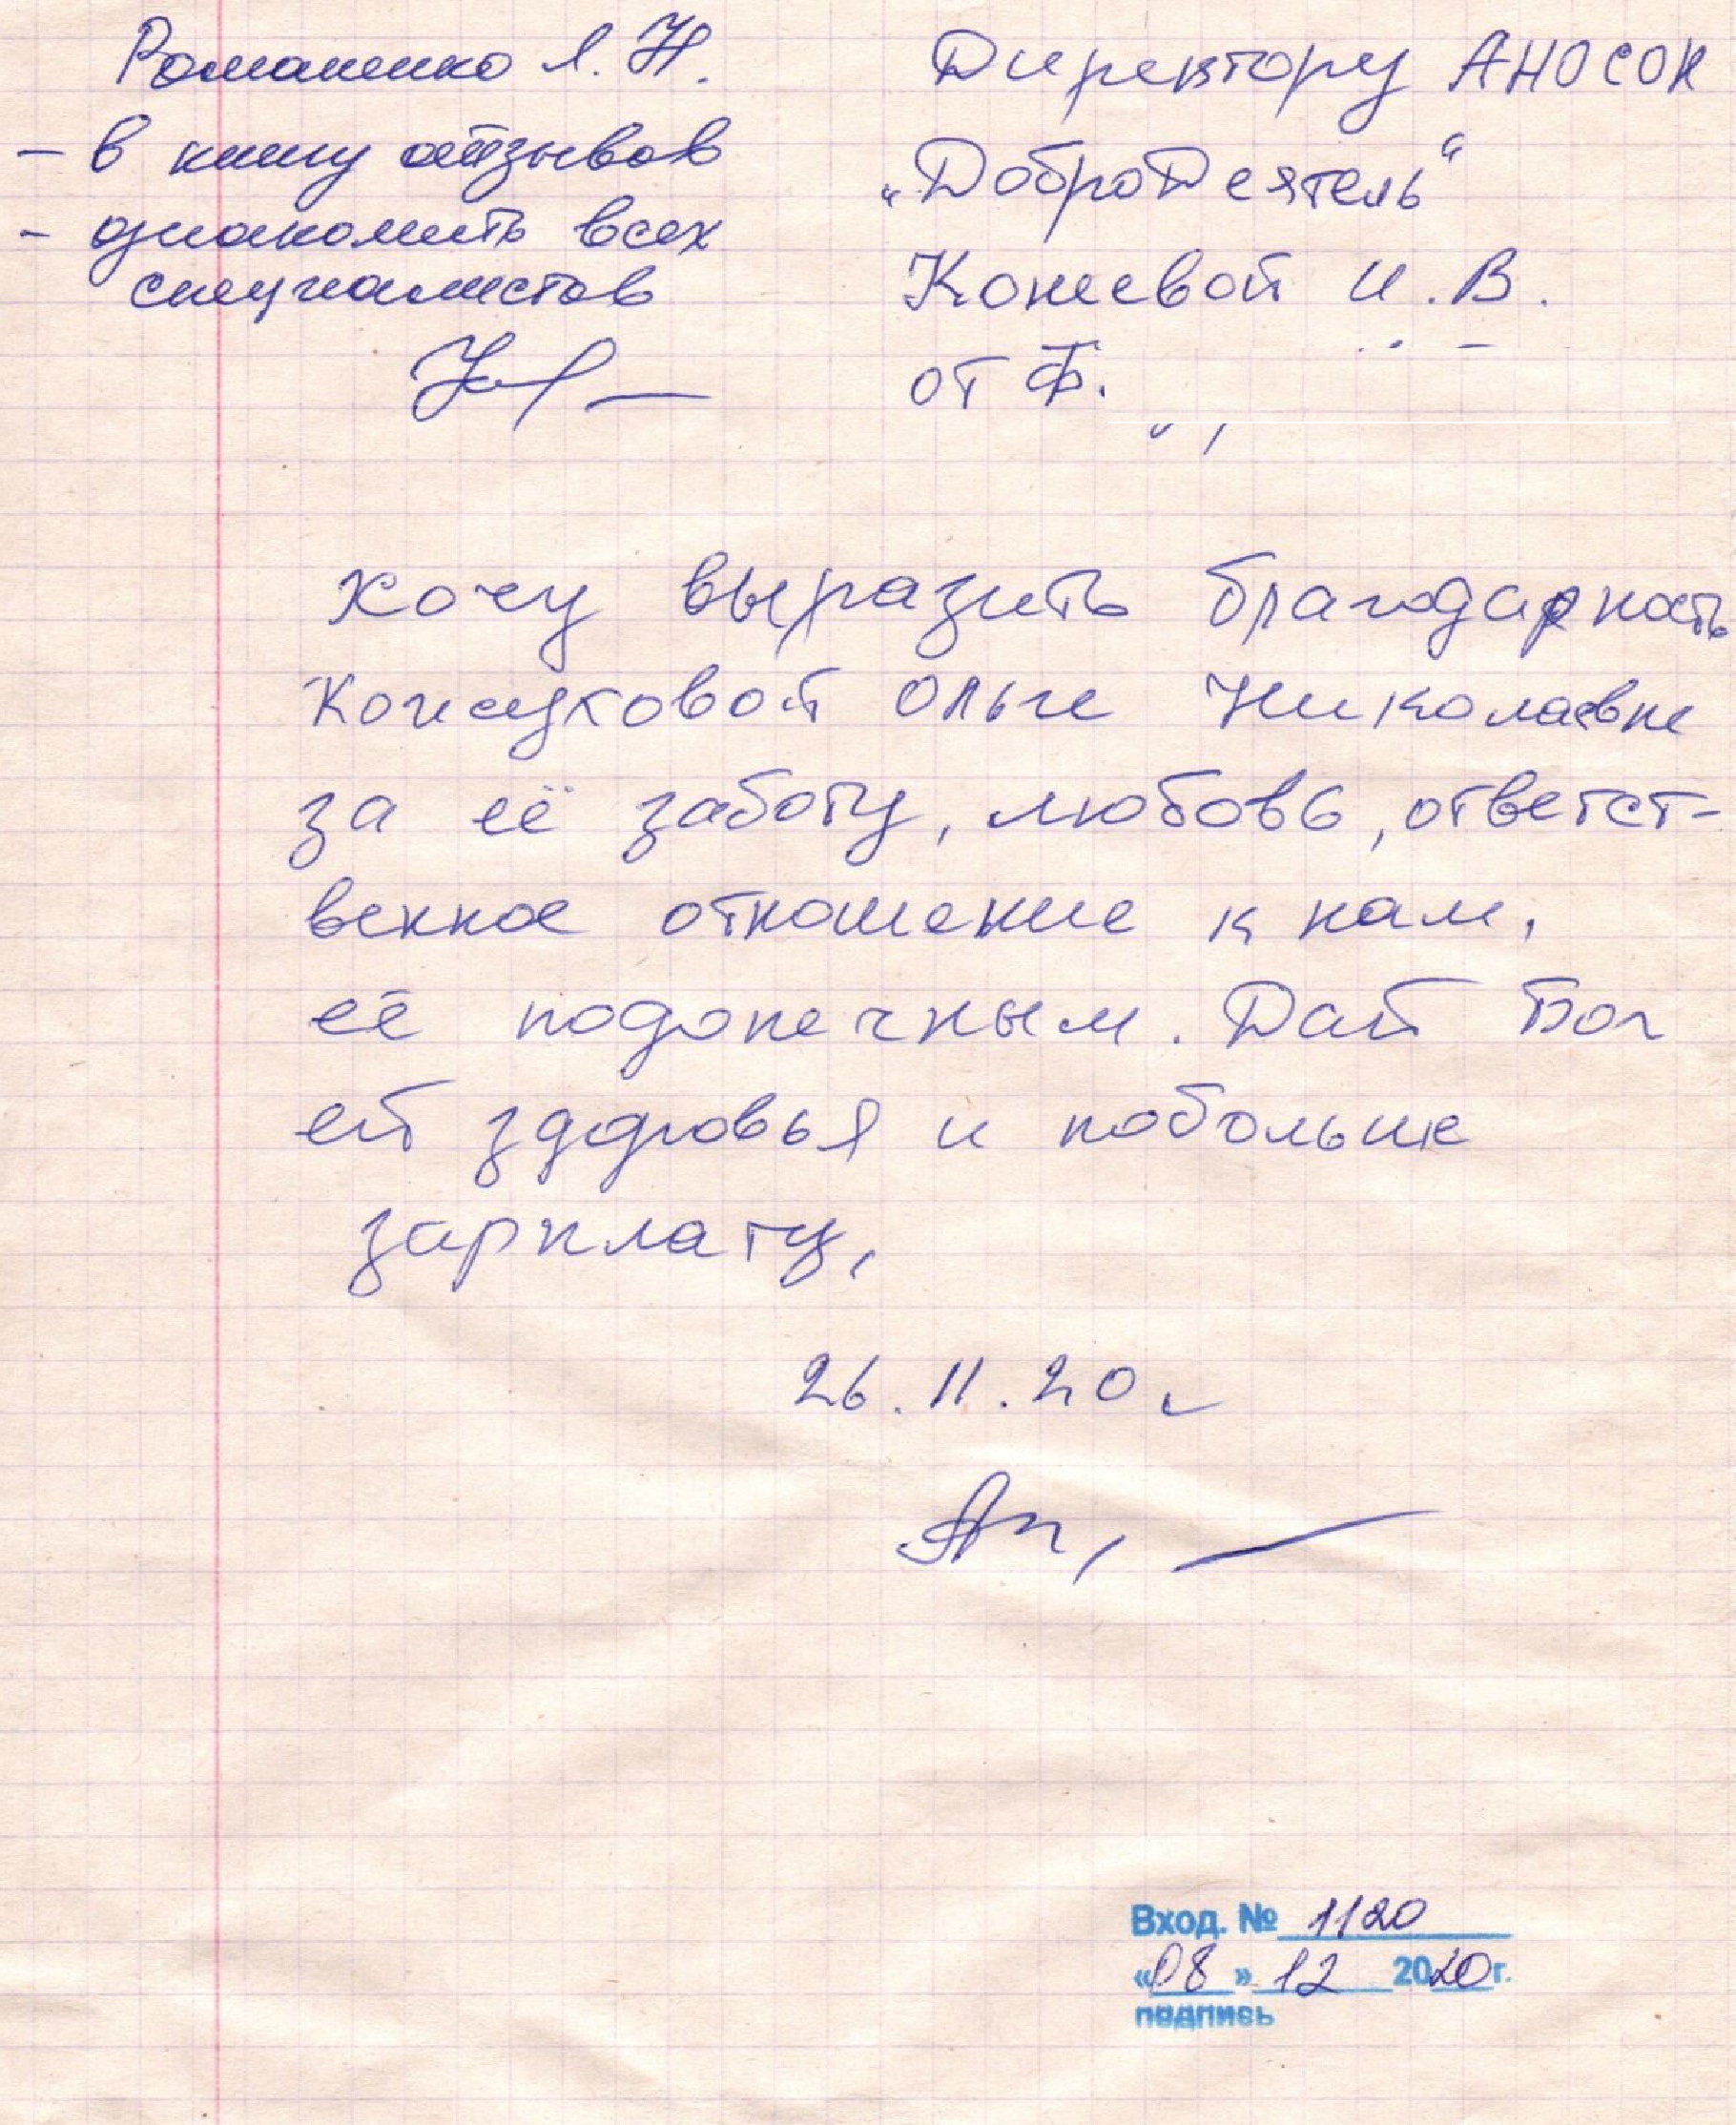 Романенко Л. Н.
- в книгу отзывов
- ознакомить всех
специалистов
Директору АНОСОН
„ДоброДеятель“
Коневой И. В.
от Б.
Хочу выразить благодарность
Ольге Николаевне
за её заботу, любовь, ответст-
венное отношение к нам,
её подопечным. Дай Бог
ей здоровья и побольше
зарплату,
26.11.20г
Вход. № 1120
«08» 12 2020г.
подпись